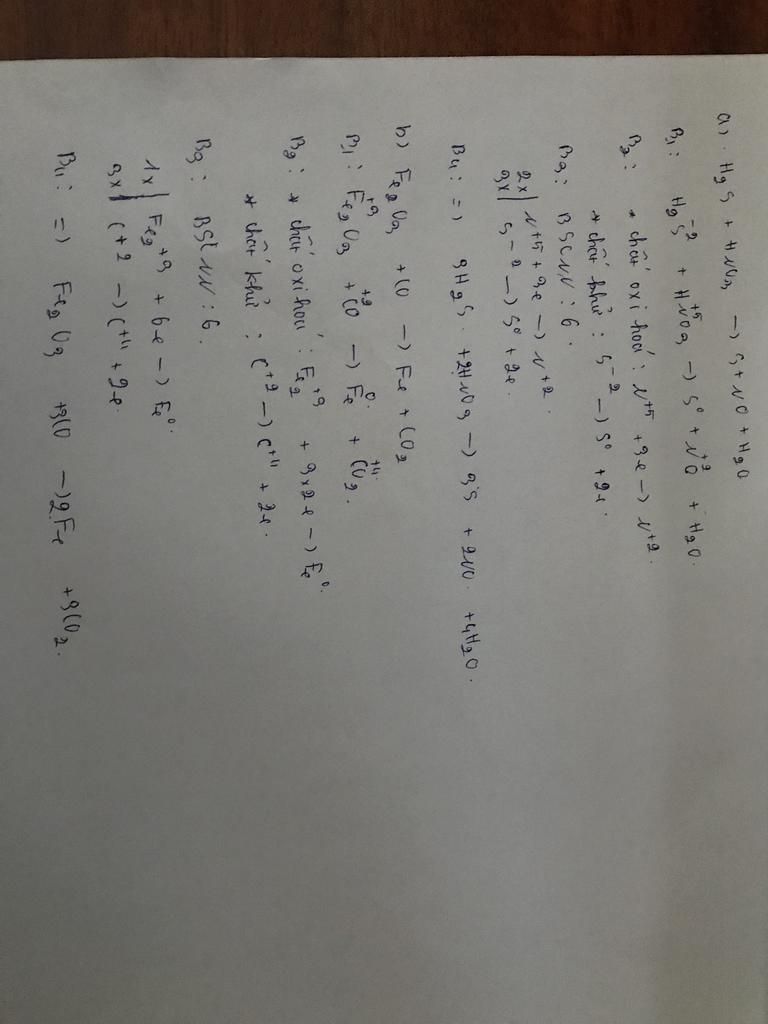 a) H2S + HNO3 -> S + NO + H2O
B1: H2S^-2 + HN^+5O3 -> S^0 + N^+2O + H2O.
B2: * chất oxi hoá: N^+5 + 3e -> N^+2.
* chất khử: S^-2 -> S^0 + 2e.
B3: BSCNN: 6.
2x| N^+5 + 3e -> N^+2.
3x| S^-2 -> S^0 + 2e.
B4: => 3H2S + 2HNO3 -> 3S + 2NO. + 4H2O.
b) Fe2O3 + CO -> Fe + CO2
B1: Fe2^+3O3 + C^+2O -> Fe^0 + C^+4O2.
B2: * chất oxi hoá: Fe2^+3 + 3x2e -> Fe^0.
* chất khử: C^+2 -> C^+4 + 2e.
B3: BSCNN: 6.
1x| Fe2^+3 + 6e -> Fe^0.
3x| C^+2 -> C^+4 + 2e.
B4: => Fe2O3 + 3CO -> 2Fe + 3CO2.